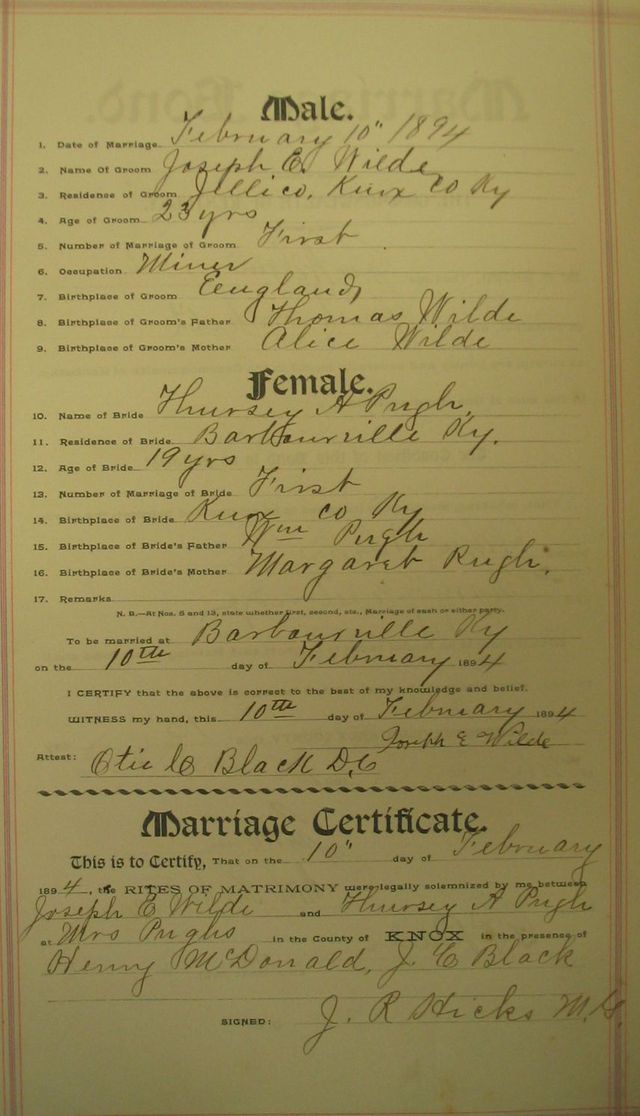 Male.
1. Date of Marriage February 10" 1894
2. Name Of Groom Joseph E. Wilde
3. Residence of Groom Jellico, Knox Co Ky
4. Age of Groom 23 yrs
5. Number of Marriage of Groom First
6. Occupation Miner
7. Birthplace of Groom Eengland
8. Birthplace of Groom's Father Thomas Wilde
9. Birthplace of Groom's Mother Alice Wilde
Female.
10. Name of Bride Thursey A Pugh
11. Residence of Bride Barbourville Ky.
12. Age of Bride 19 yrs
13. Number of Marriage of Bride First
14. Birthplace of Bride Knox Co Ky
15. Birthplace of Bride's Father Wm Pugh
16. Birthplace of Bride's Mother Margaret Pugh.
17. Remarks
N. B.—At Nos. 5 and 13, state whether first, second, etc., Marriage of each or either party.
To be married at Barbourville Ky
on the 10th day of February 1894
I CERTIFY that the above is correct to the best of my knowledge and belief.
WITNESS my hand, this 10th day of February 1894
Joseph E Wilde
Attest: Otis C Black D.C
Marriage Certificate.
This is to Certify, That on the 10" day of February
1894, the RITES OF MATRIMONY were legally solemnized by me between
Joseph E Wilde and Thursey A Pugh
at Mrs Pughs in the County of KNOX in the presence of
Henry McDonald, J. C Black
SIGNED: J. R Hicks M.G.